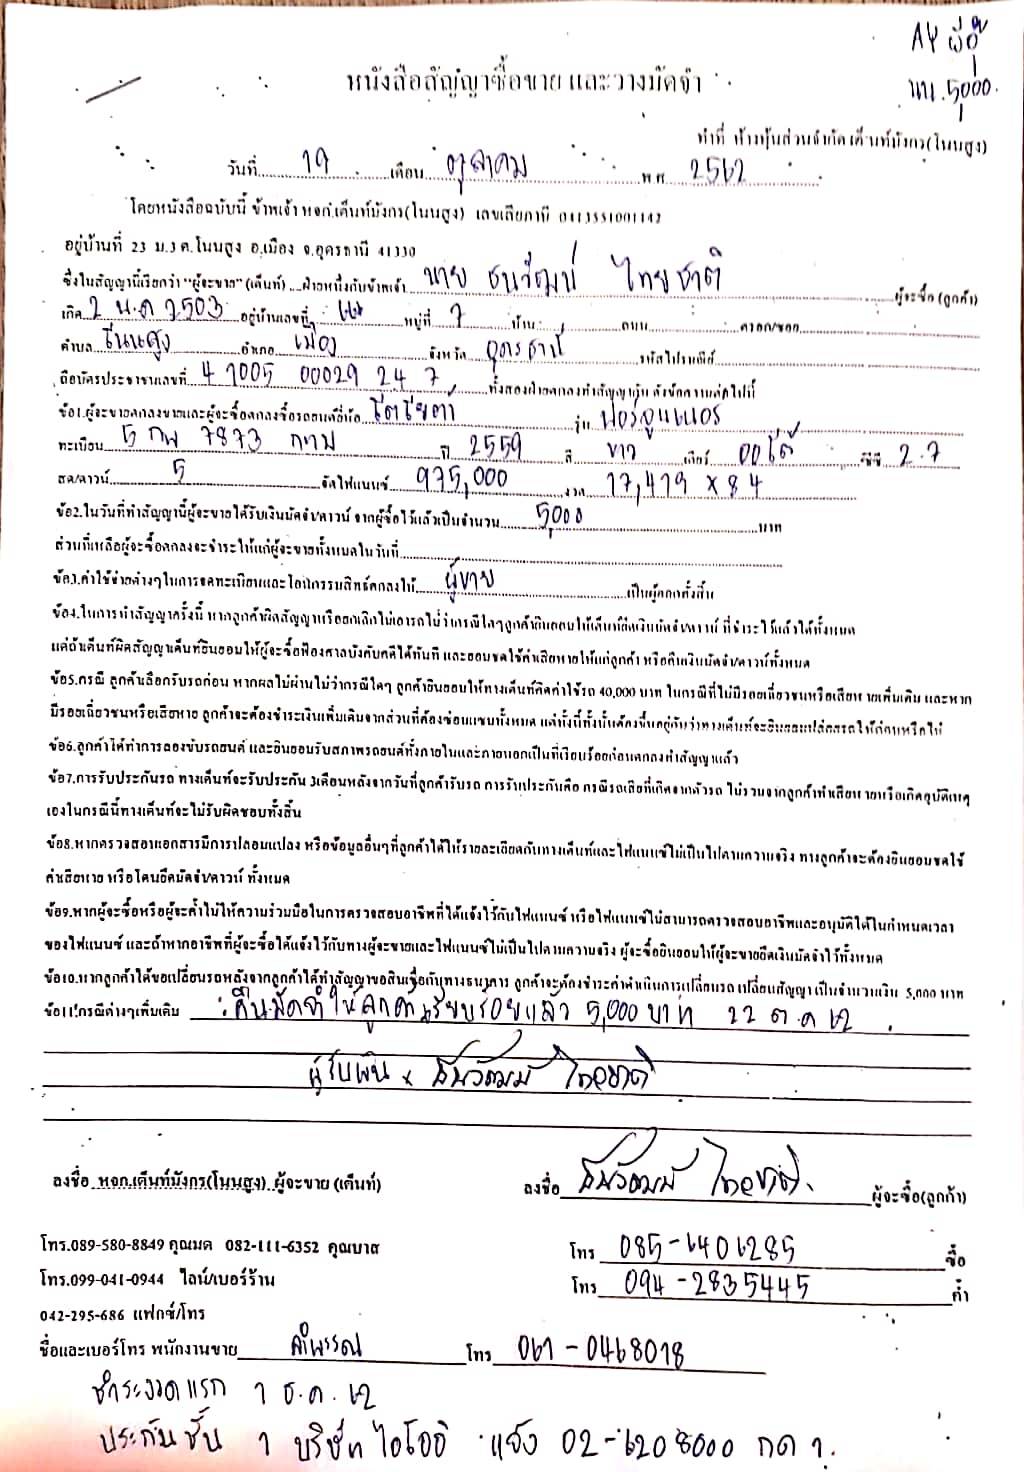 AY
นน. 5,000.
หนังสือสัญญาซื้อขาย และวางมัดจำ
ทำที่ ห้างหุ้นส่วนจำกัด เต็นท์มังกร(โนนสูง)
วันที่ 19 เดือน ตุลาคม พ.ศ. 2562
โดยหนังสือฉบับนี้ ข้าพเจ้า หจก.เต็นท์มังกร(โนนสูง) เลขเสียภาษี 0413551001142
อยู่บ้านที่ 23 ม.3 ต.โนนสูง อ.เมือง จ.อุดรธานี 41330
ซึ่งในสัญญานี้เรียกว่า "ผู้จะขาย" (เต็นท์) ฝ่ายหนึ่งกับข้าพเจ้า นาย ธนวัฒน์ ไทยชาติ ผู้จะซื้อ (ลูกค้า)
เกิด 2 พ.ศ 2503 อยู่บ้านเลขที่ หมู่ที่ 7 บ้าน ถนน ตรอก/ซอย
ตำบล โนนสูง อำเภอ เมือง จังหวัด อุดรธานี รหัสไปรษณีย์
ถือบัตรประชาชนเลขที่ 4 1005 00029 24 7 ทั้งสองฝ่ายตกลงทำสัญญากัน ดังข้อความต่อไปนี้
ข้อ1.ผู้จะขายตกลงขายและผู้จะซื้อตกลงซื้อรถยนต์ยี่ห้อ โตโยต้า รุ่น ฟอร์จูนเนอร์
ทะเบียน 5 กพ 7873 กทม ปี 2559 สี ขาว เกียร์ ออโต้ ซีซี 2.7
สด/ดาวน์ 5 จัดไฟแนนซ์ 975,000 งวด 17,419 x 84
ข้อ2.ในวันที่ทำสัญญานี้ผู้จะขายได้รับเงินมัดจำ/ดาวน์ จากผู้ซื้อไว้แล้วเป็นจำนวน 5,000 บาท
ส่วนที่เหลือผู้จะซื้อตกลงจะชำระให้แก่ผู้จะขายทั้งหมดในวันที่
ข้อ3.ค่าใช้จ่ายต่างๆในการจดทะเบียนและโอนกรรมสิทธิ์ตกลงให้ ผู้ขาย เป็นผู้ออกทั้งสิ้น
ข้อ4.ในการทำสัญญาครั้งนี้ หากลูกค้าผิดสัญญาหรือยกเลิกไม่เอารถไม่ว่ากรณีใดๆลูกค้ายินยอมให้เต็นท์ยึดเงินมัดจำ/ดาวน์ ที่ชำระไว้แล้วได้ทั้งหมด
แต่ถ้าเต็นท์ผิดสัญญาเต็นท์ยินยอมให้ผู้จะซื้อฟ้องศาลบังคับคดีได้ทันที และยอมชดใช้ค่าเสียหายให้แก่ลูกค้า หรือคืนเงินมัดจำ/ดาวน์ทั้งหมด
ข้อ5.กรณี ลูกค้าเลือกรับรถก่อน หากผลไม่ผ่านไม่ว่ากรณีใดๆ ลูกค้ายินยอมให้ทางเต็นท์คิดค่าใช้รถ 40,000 บาท ในกรณีที่ไม่มีรอยเฉี่ยวชนหรือเสียหายเพิ่มเติม และหาก
มีรอยเฉี่ยวชนหรือเสียหาย ลูกค้าจะต้องชำระเงินเพิ่มเติมจากส่วนที่ต้องซ่อมแซมทั้งหมด แต่ทั้งนี้ทั้งนั้นต้องขึ้นอยู่กับว่าทางเต็นท์จะยินยอมปล่อยรถให้ก่อนหรือไม่
ข้อ6.ลูกค้าได้ทำการลองขับรถยนต์ และยินยอมรับสภาพรถยนต์ทั้งภายในและภายนอกเป็นที่เรียบร้อยก่อนตกลงทำสัญญาแล้ว
ข้อ7.การรับประกันรถ ทางเต็นท์จะรับประกัน 3เดือนหลังจากวันที่ลูกค้ารับรถ การรับประกันคือ กรณีรถเสียที่เกิดจากตัวรถ ไม่รวมจากลูกค้าทำเสียหายหรือเกิดอุบัติเหตุ
เองในกรณีนี้ทางเต็นท์จะไม่รับผิดชอบทั้งสิ้น
ข้อ8.หากตรวจสอบเอกสารมีการปลอมแปลง หรือข้อมูลอื่นๆที่ลูกค้าได้ให้รายละเอียดกับทางเต็นท์และไฟแนนซ์ไม่เป็นไปตามความจริง ทางลูกค้าจะต้องยินยอมชดใช้
ค่าเสียหาย หรือโดนยึดมัดจำ/ดาวน์ ทั้งหมด
ข้อ9.หากผู้จะซื้อหรือผู้จะค้ำไม่ให้ความร่วมมือในการตรวจสอบอาชีพที่ได้แจ้งไว้กับไฟแนนซ์ หรือไฟแนนซ์ไม่สามารถตรวจสอบอาชีพและอนุมัติได้ในกำหนดเวลา
ของไฟแนนซ์ และถ้าหากอาชีพที่ผู้จะซื้อได้แจ้งไว้กับทางผู้จะขายและไฟแนนซ์ไม่เป็นไปตามความจริง ผู้จะซื้อยินยอมให้ผู้จะขายยึดเงินมัดจำไว้ทั้งหมด
ข้อ10.หากลูกค้าได้ขอเปลี่ยนรถหลังจากลูกค้าได้ทำสัญญาขอสินเชื่อกับทางธนาคาร ลูกค้าจะต้องชำระค่าดำเนินการเปลี่ยนรถ เปลี่ยนสัญญา เป็นจำนวนเงิน 5,000 บาท
ข้อ11.กรณีต่างๆเพิ่มเติม คืนมัดจำให้ลูกค้าเรียบร้อยแล้ว 5,000 บาท 22 ต.ค 62
ผู้รับเงิน x ธนวัฒน์ ไทยชาติ
ลงชื่อ หจก.เต็นท์มังกร(โนนสูง) ผู้จะขาย (เต็นท์) ลงชื่อ ธนวัฒน์ ไทยชาติ ผู้จะซื้อ(ลูกค้า)
โทร.089-580-8849 คุณมด 082-111-6352 คุณบาส โทร 085-6401285 ซื้อ
โทร.099-041-0944 ไลน์/เบอร์ร้าน โทร 094-2835445 ค้ำ
042-295-686 แฟกซ์/โทร
ชื่อและเบอร์โทร พนักงานขาย ลำพรรณ โทร 061-0468018
ชำระงวดแรก 1 ธ.ค. 62
ประกันชั้น 1 บริษัท ไอโออิ แจ้ง 02-6208000 กด 1.